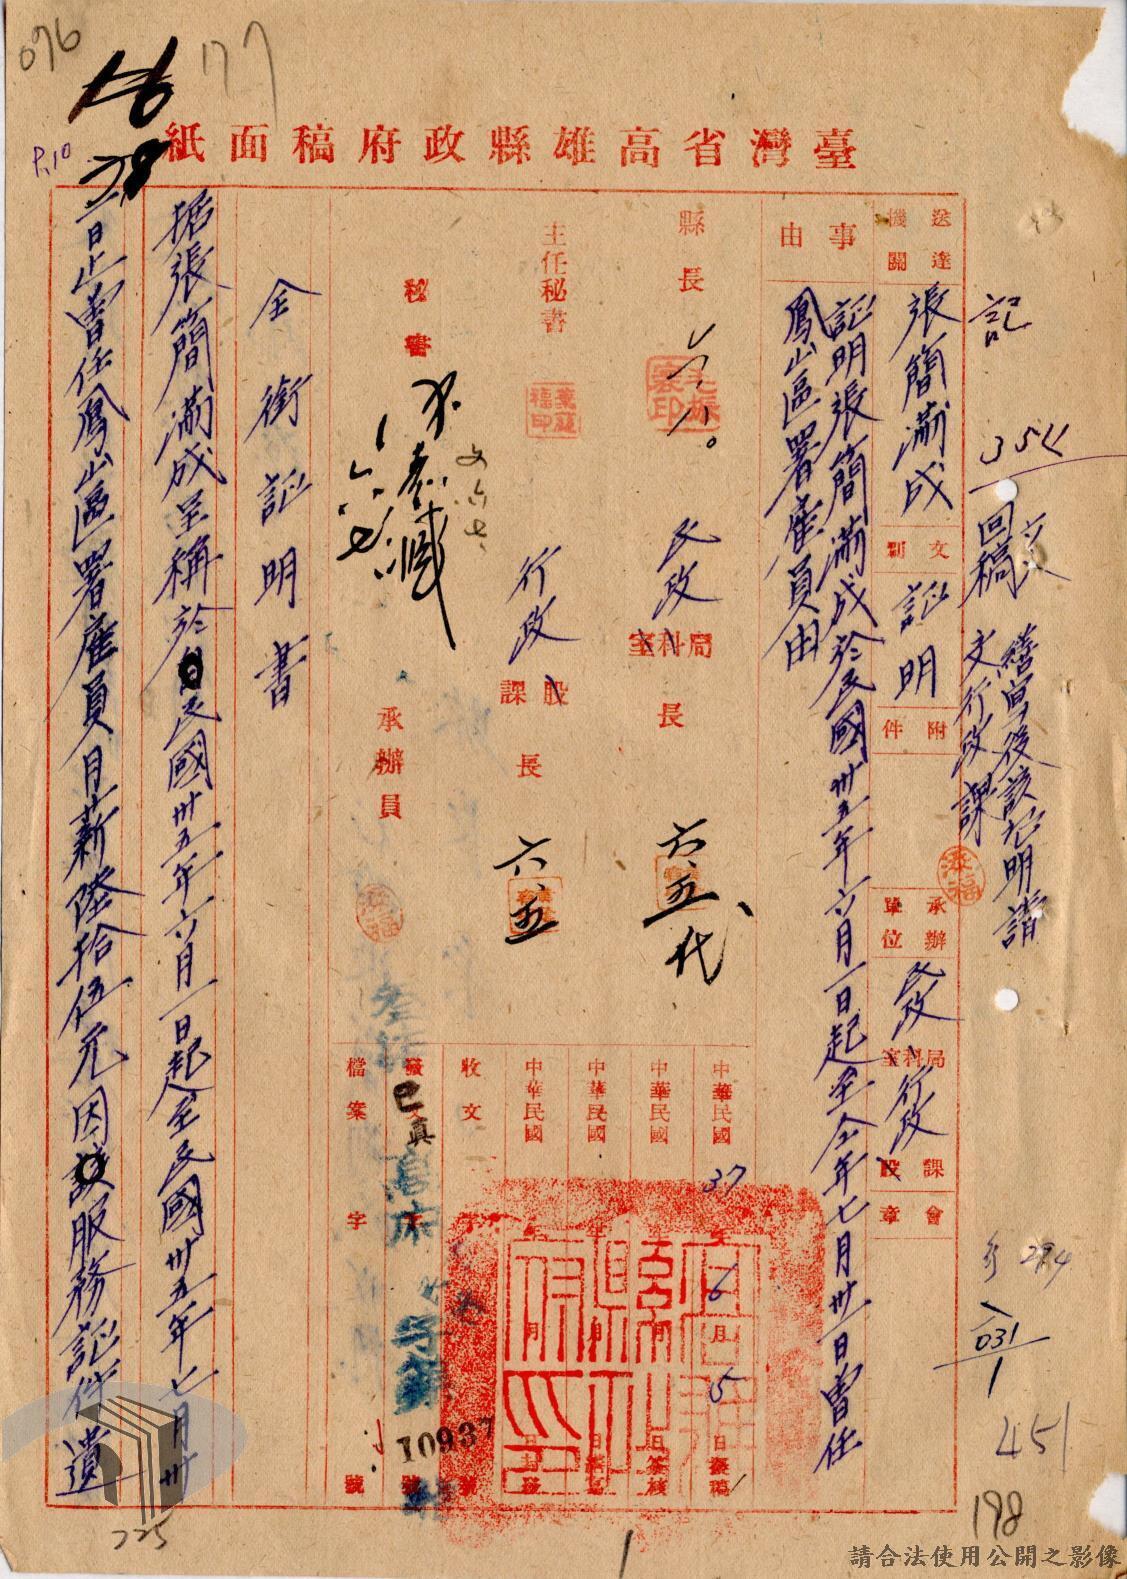 076
177
16
28
P.10
臺灣省高雄縣政府稿面紙
記
354
回稿
繕寫後該證明請
交行政課
送達機關
張簡滿成
文別
証明
附件
承辦單位
民政局科室
行政課股
會章
事由
証明張簡滿成於民國卅五年六月一日起至仝年七月卅一日曾任
鳳山區署雇員由
縣長
民政局科室長
六.五.代
主任秘書
行政課股長
六.五
秘書
承辦員
中華民國37年6月5日擬稿
中華民國年月日簽核
中華民國年月日繕寫
中華民國年月日封發
收文字號
發文字號
10937
檔案字號
仝銜証明書
据張簡滿成呈稱於民國卅五年六月一日起至民國卅五年七月卅
一日止曾任鳳山區署雇員月薪陸拾伍元因該服務証件遺
294
031
1
451
198
225
1
請合法使用公開之影像